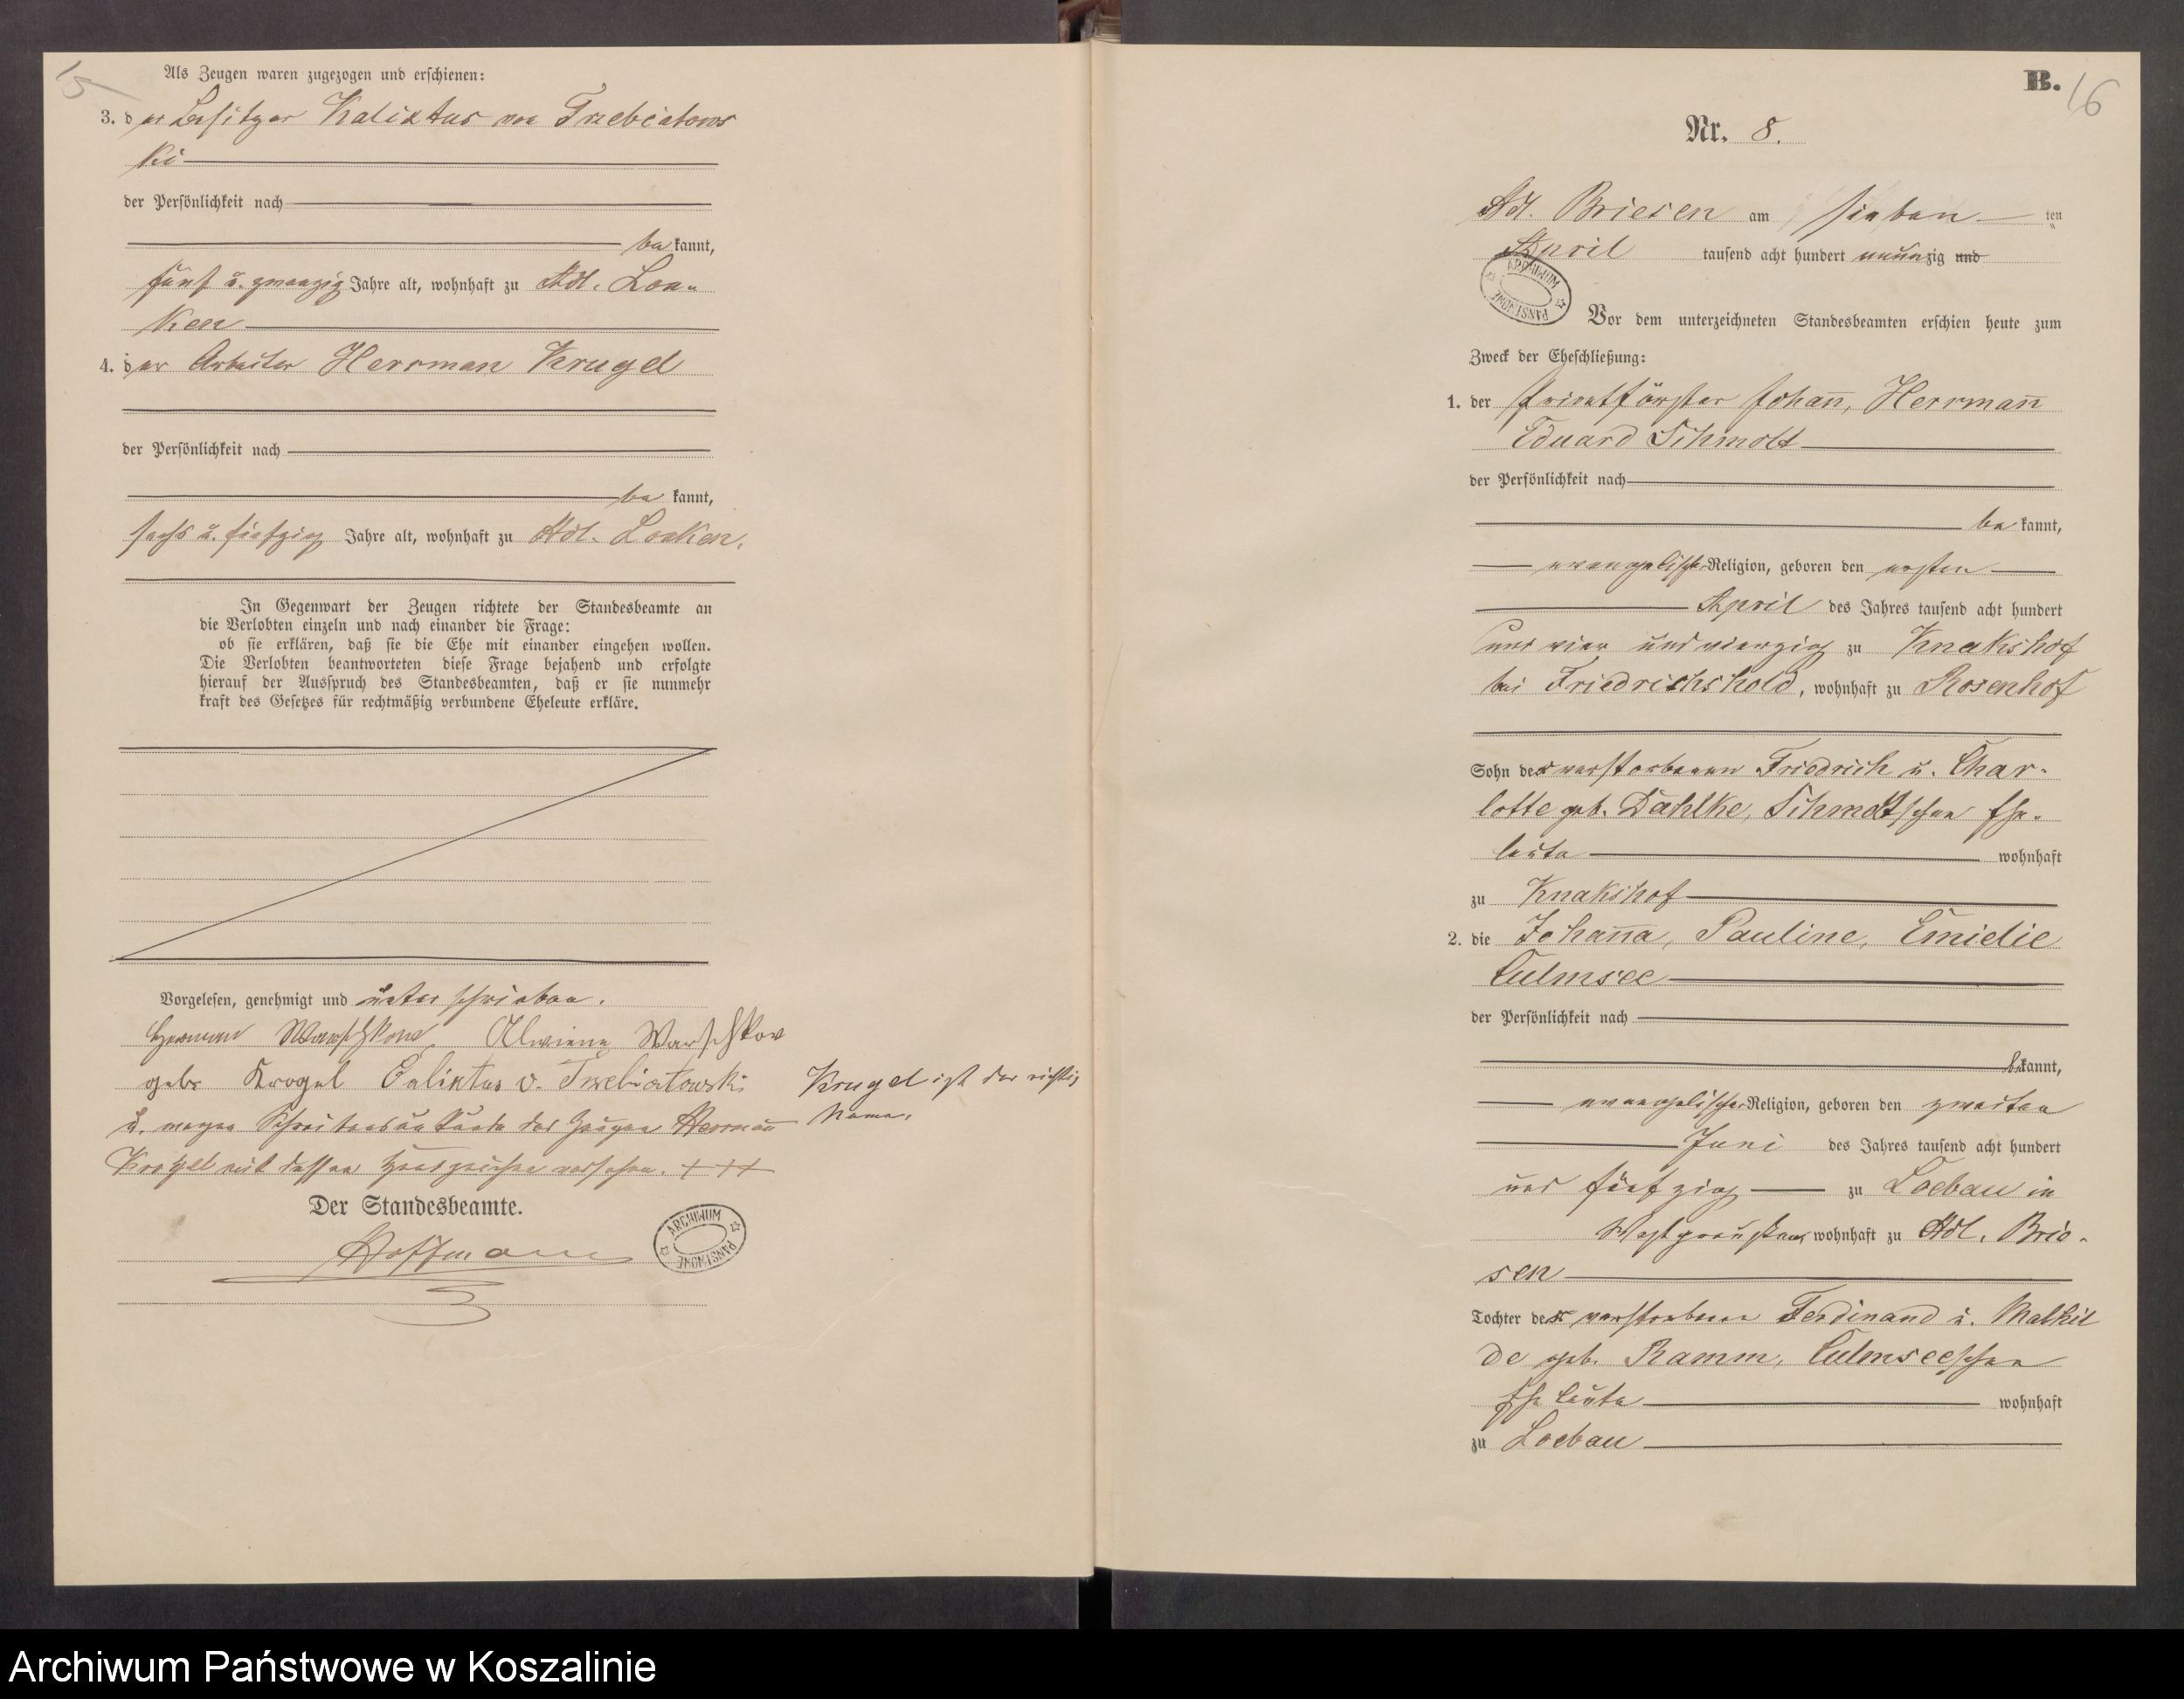 15
Als Zeugen waren zugezogen und erschienen:
3. der Besitzer Kalixtus von Trzebiatows
ki
der Persönlichkeit nach
bekannt,
fünf u. zwanzig Jahre alt, wohnhaft zu Adl. Loo-
ken
4. der Arbeiter Herrman Krugel
der Persönlichkeit nach
bekannt,
sechs u. fünfzig Jahre alt, wohnhaft zu Adl. Looken.
In Gegenwart der Zeugen richtete der Standesbeamte an
die Verlobten einzeln und nach einander die Frage:
ob sie erklären, daß sie die Ehe mit einander eingehen wollen.
Die Verlobten beantworteten diese Frage bejahend und erfolgte
hierauf der Ausspruch des Standesbeamten, daß er sie nunmehr
kraft des Gesetzes für rechtmäßig verbundene Eheleute erkläre.
Vorgelesen, genehmigt und unterschrieben.
Herman Warschkow, Alwiene Warschkow
gebr Krogel Calixtus v. Trzebiatowski
Krugel ist der richtig
Name.
u. wegen Schreibensunkunde des Zeugen Herrmann
Krugel mit dessen Handzeichen versehen. +++
Der Standesbeamte.
Hoffmann
ARCHIWUM PAŃSTWOWE
B. 16
Nr. 8.
Adl. Briesen am sieben ten
April tausend acht hundert neunzig und
ARCHIWUM PAŃSTWOWE
Vor dem unterzeichneten Standesbeamten erschien heute zum
Zweck der Eheschließung:
1. der Privatförster Johann, Herrmann
Eduard Schmolt
der Persönlichkeit nach
bekannt,
evangelischer Religion, geboren den ersten
April des Jahres tausend acht hundert
und vier und vierzig zu Knakshof
bei Friedrichshold, wohnhaft zu Rosenhof
Sohn der verstorbenen Friedrich u. Char-
lotte geb. Dahlke, Schmoltschen Ehe-
leute wohnhaft
zu Knakshof
2. die Johanna, Pauline, Emielie
Culmsee
der Persönlichkeit nach
bekannt,
evangelischer Religion, geboren den zweiten
Juni des Jahres tausend acht hundert
und fünfzig zu Loebau in
Westpreußen, wohnhaft zu Adl. Brie-
sen
Tochter der verstorbenen Ferdinand u. Malthil
de geb. Ramm, Culmseeschen
Eheleute wohnhaft
zu Loebau
Archiwum Państwowe w Koszalinie